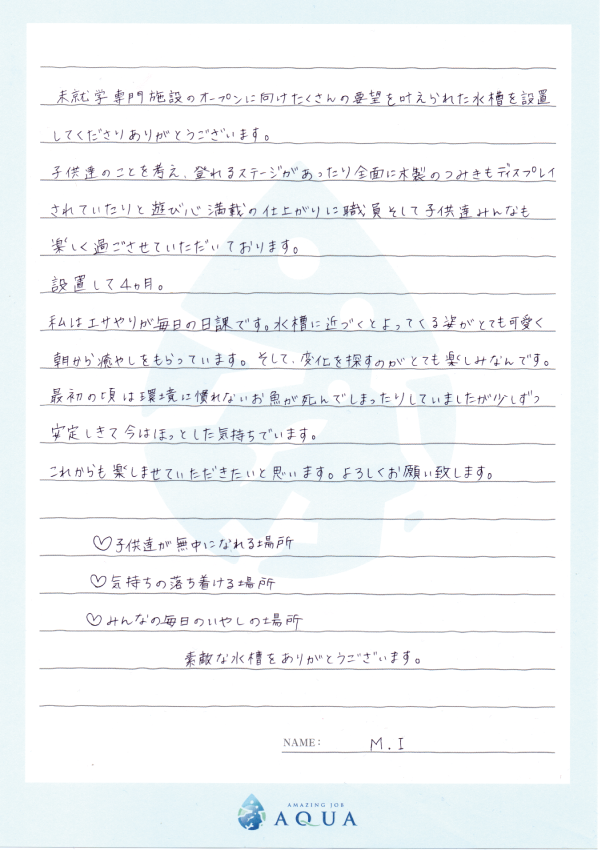 未就学専門施設のオープンに向けたくさんの要望を叶えられた水槽を設置
してくださりありがとうございます。
子供達のことを考え、登れるステージがあったり全面に木製のつみきもディスプレイ
されていたりと遊び心満載の仕上がりに職員そして子供達みんなも
楽しく過ごさせていただいております。
設置して4ヵ月。
私はエサやりが毎日の日課です。水槽に近づくとよってくる姿がとても可愛く
朝から癒やしをもらっています。そして、変化を探すのがとても楽しみなんです。
最初の頃は環境に慣れないお魚が死んでしまったりしていましたが少しずつ
安定しきて今はほっとした気持ちでいます。
これからも楽しませていただきたいと思います。よろしくお願い致します。
♡子供達が無中になれる場所
♡気持ちの落ち着ける場所
♡みんなの毎日のいやしの場所
素敵な水槽をありがとうございます。
NAME: M.I
AMAZING JOB
AQUA